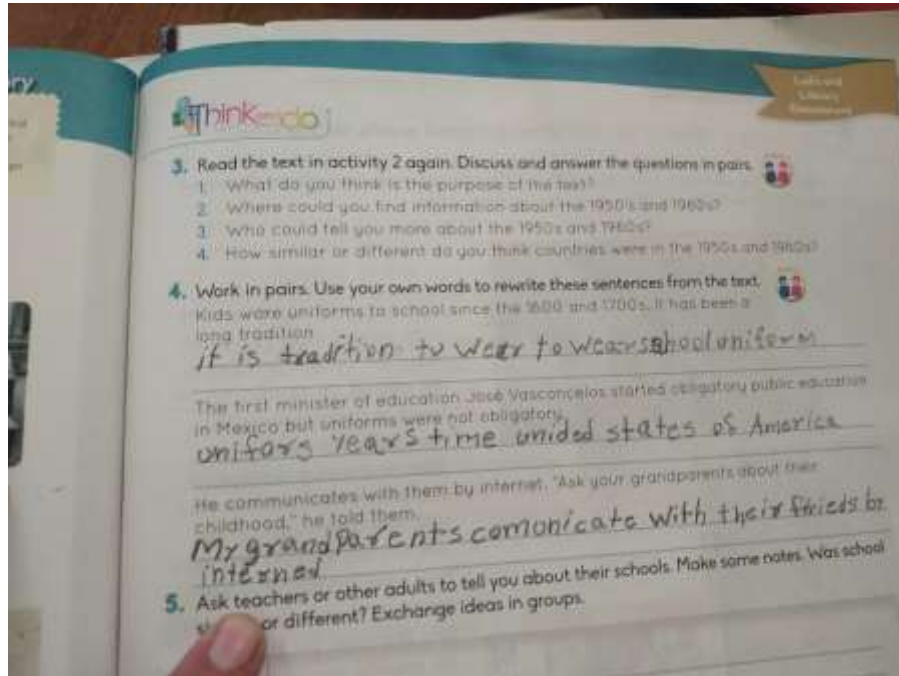 Think and do
3. Read the text in activity 2 again. Discuss and answer the questions in pairs.
1. What do you think is the purpose of the text?
2. Where could you find information about the 1950's and 1960s?
3. Who could tell you more about the 1950s and 1960s?
4. How similar or different do you think countries were in the 1950s and 1960s?
4. Work in pairs. Use your own words to rewrite these sentences from the text.
Kids wore uniforms to school since the 1600 and 1700s. It has been a
long tradition
it is tradition to wear to wear school uniform
The first minister of education José Vasconcelos started obligatory public education
in Mexico but uniforms were not obligatory.
unifors years time unided states of America
He communicates with them by internet. "Ask your grandparents about their
childhood," he told them.
My grandparents comonicate with their frieds by
interned
5. Ask teachers or other adults to tell you about their schools. Make some notes. Was school
or different? Exchange ideas in groups.